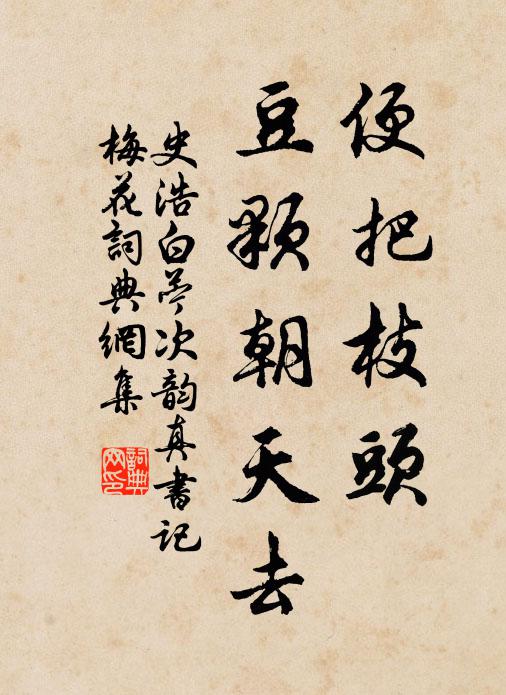 便把枝頭
豆顆朝天去
史浩白苎次韵真書記
梅花詞典網集
詞典
网印